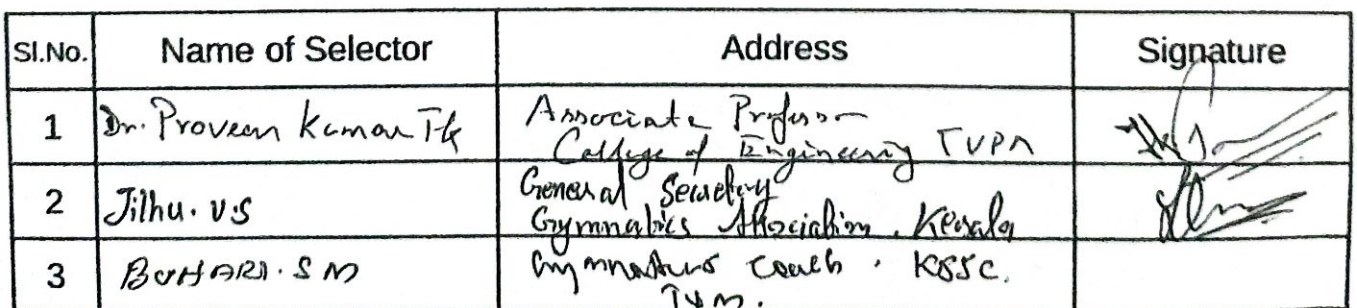 Sl.No. Name of Selector Address Signature
1 Dr. Praveen Kumar TK Associate Professor
College of Engineering TVPM
2 Jilhu. V.S General Secretary
Gymnastics Association, Kerala
3 BUHARI. S M Gymnastics Coach, KSSC.
TVM.